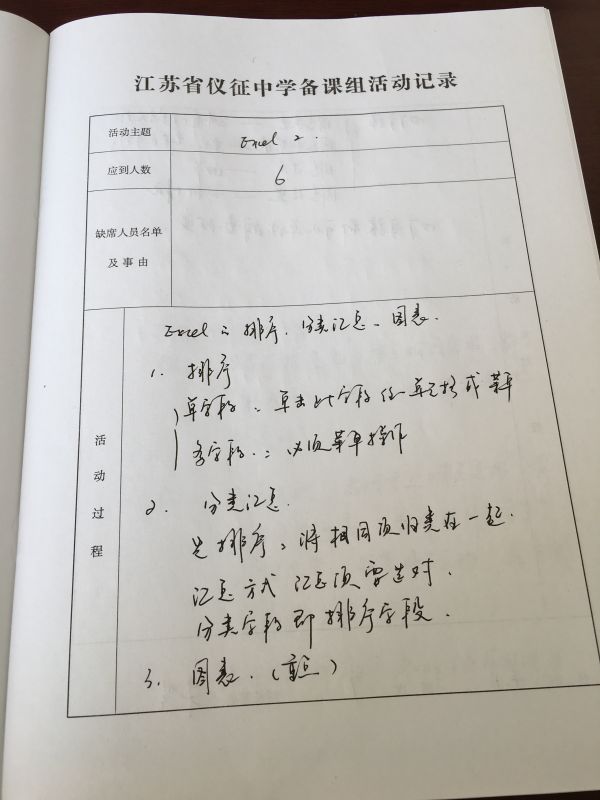 江苏省仪征中学备课组活动记录
活动主题
Excel 2.
应到人数
6
缺席人员名单
及事由
活动过程
Excel 之 排序、分类汇总、图表.
1. 排序
单字段: 单击此字段任一单元格或菜单
多字段: 必须菜单操作
2. 分类汇总.
先排序, 将相同项归类在一起.
汇总方式 汇总项要选对.
分类字段即排序字段.
3. 图表. (重点)